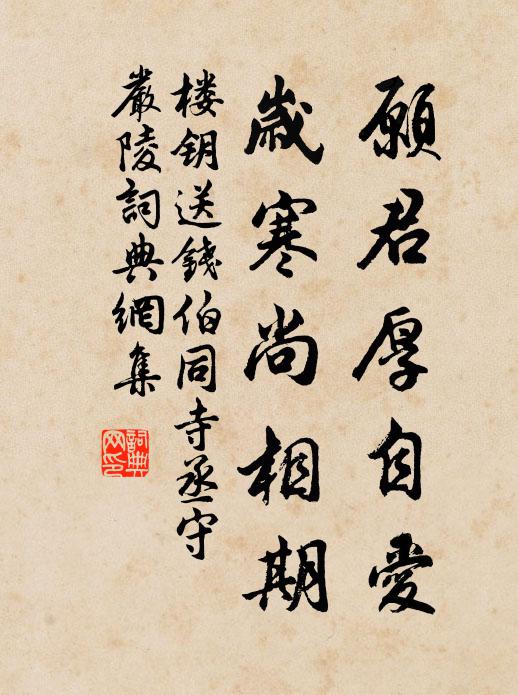 願君厚自愛
歲寒尚相期
楼钥送錢伯同寺丞守
嚴陵詞典網集
詞典
网印